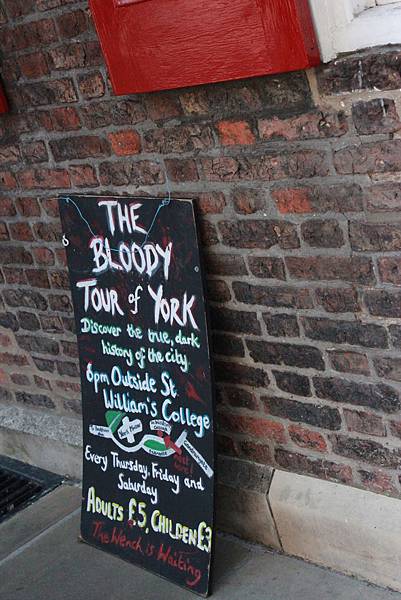 THE
BLOODY
TOUR of YORK
Discover the true, dark
history of the city.
6pm Outside St.
William's College
Every Thursday, Friday and
Saturday
ADULTS £5 CHILDEN £3
The Wench is Waiting